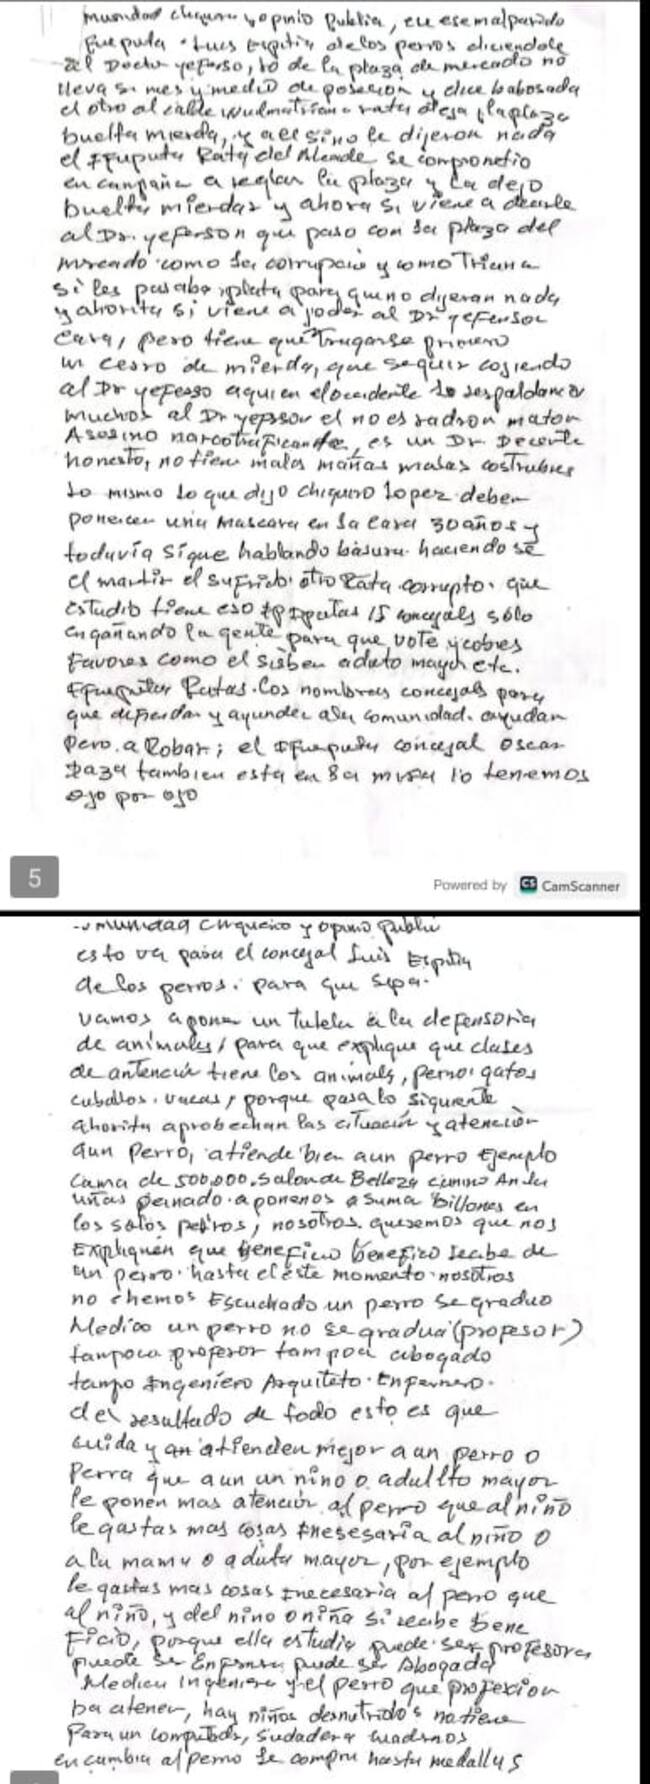 munidad chiquero y opinio Publia, eu ese malparido
Fueputa Lues Espitia de los perros diciendole
al Doctor yeferso, lo de la plaza de mercado no
lleva si mes y medio de posecion y dice babosada
el otro al calde rata deja la plaza
buelta mierda, y a el si no le dijeron nada
el FFuputa Rata del Alcade se comprometio
en campaña a reglar la plaza y la dejo
buelta mierdas y ahora si viene a decirle
al Dr. yeferson que paso con la plaza del
mercado como la corrupcio y como Triana
si les pasaba plata para qui no dijeran nada
y ahorita si viene a joder al Dr yeferson
Cara, pero tiene que tragarse primero
un cerro de mierda, que seguir cogiendo
al Dr yefesso aqui en el occidente lo respaldan
muchos al Dr yepsson el no es ladron maton
Asesino narcotraficante, es un Dr Decente
honesto, no tiene malas mañas malas costrubres
Lo mismo lo que dijo chiquiro Lopez deben
ponercen una mascara en la cara 30 años y
todavia sigue hablando basura haciendo se
el martir el sufrido otro Rata corrupto. que
Estudio tiene eso 15 concejals sólo
engañando la gente para que vote y cobres
Favores como el Sisben aduto mayor etc.
Ratas. Los nombran concejals para
que difiendar y ayunder a la comunidad. ayudan
Pero. a Robar; el FFueputa concejal oscar
Daza tambien esta en la mira lo tenemos
ojo por ojo
5
Powered by CS CamScanner
munidad chiqueiro y opinio publi
esto va para el concejal Luis Espitia
de los perros. para que sepa.
vamos a poner un tutela a la defensoria
de animales, para que explique que clases
de antencion tiene los animals, perroi gatos
caballos. vacas, porque pasa lo siquiente
ahorita aprobechan las cituación y atención
aun perro, atiende bien aun perro Ejemplo
Cama de 500,000. Salon de Belleza
uñas peinado. aponenos a suma billones en
los solos perros, nosotros. queremos que nos
Expliquen que benefico recibe de
un perro. hasta el este momento. nosotros
no chemos Escuchado un perro se graduo
Medico un perro no se gradua (profesor)
tampoca profesor tampoca abogado
tanpo Ingeniero Arquiteto. Enfermero.
del resultado de todo esto es que
cuida y atienden mejor a un perro o
Perra que aun un nino o adullto mayor
le ponen mas atencion al perro que al niño
le gastas mas cosas Inesesaria al niño o
a la mama o aduta mayor, por ejemplo
le gastas mas cosas Inecesaria al perro que
al niño, y del nino o niña si recibe bene
Ficio, porque ella estudia puede ser profesora
puede ser Enfermera puede ser Abogada
Medica Ingeniera y el perro que profexion
ba atener, hay niños desnutridos no tiene
para un computador, sudadera cuadernos
en cambia al perro le compra hasta medallas